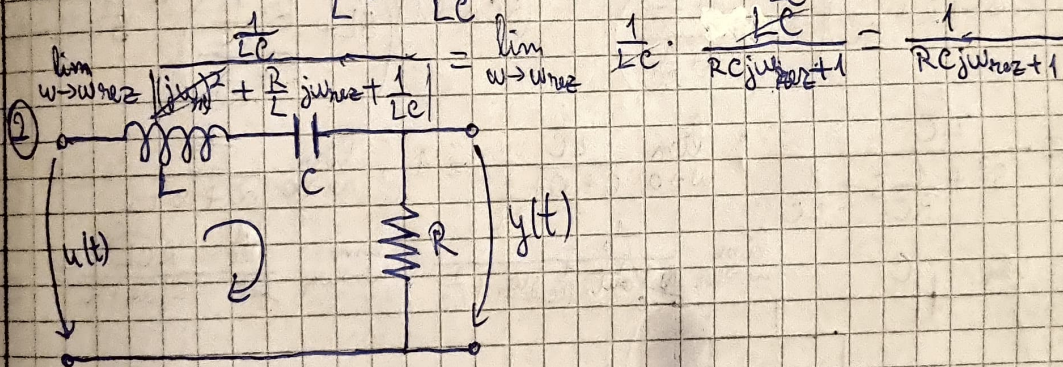 L LC
lim ω→ω rez (1/LC) / |(jω)² + R/L jω rez + 1/LC| = lim ω→ω rez 1/LC · LC / (RCjω rez + 1) = 1 / (RCjω rez + 1)
②
L C
u(t) R y(t)